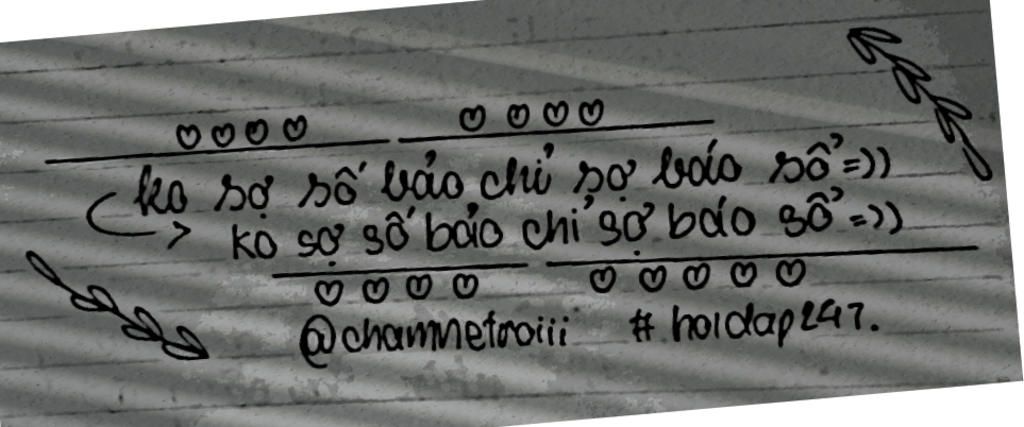 ko sợ số bảo chỉ sợ báo sổ =))
ko sợ số bảo chỉ sợ báo sổ =))
@chammetroiii # hoidap247.